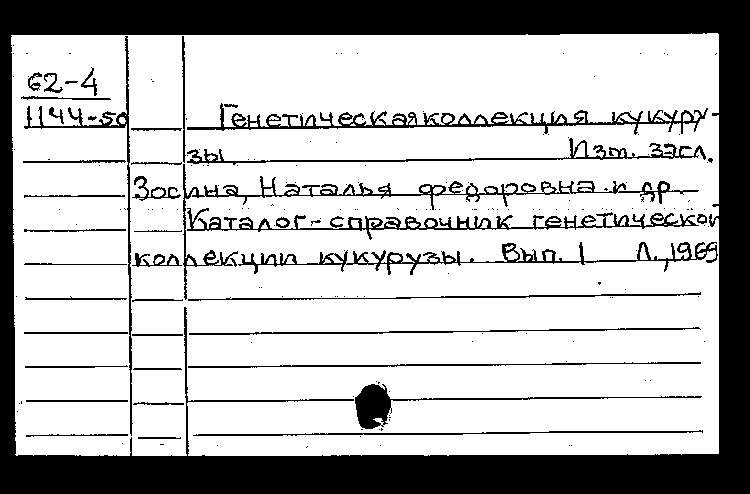 62-4
1144-50
Генетическая коллекция кукуру-
зы. Изт. засл.
Зосина, Наталья Федоровна и др.
Каталог-справочник генетической
коллекции кукурузы. Вып. 1 Л., 1969